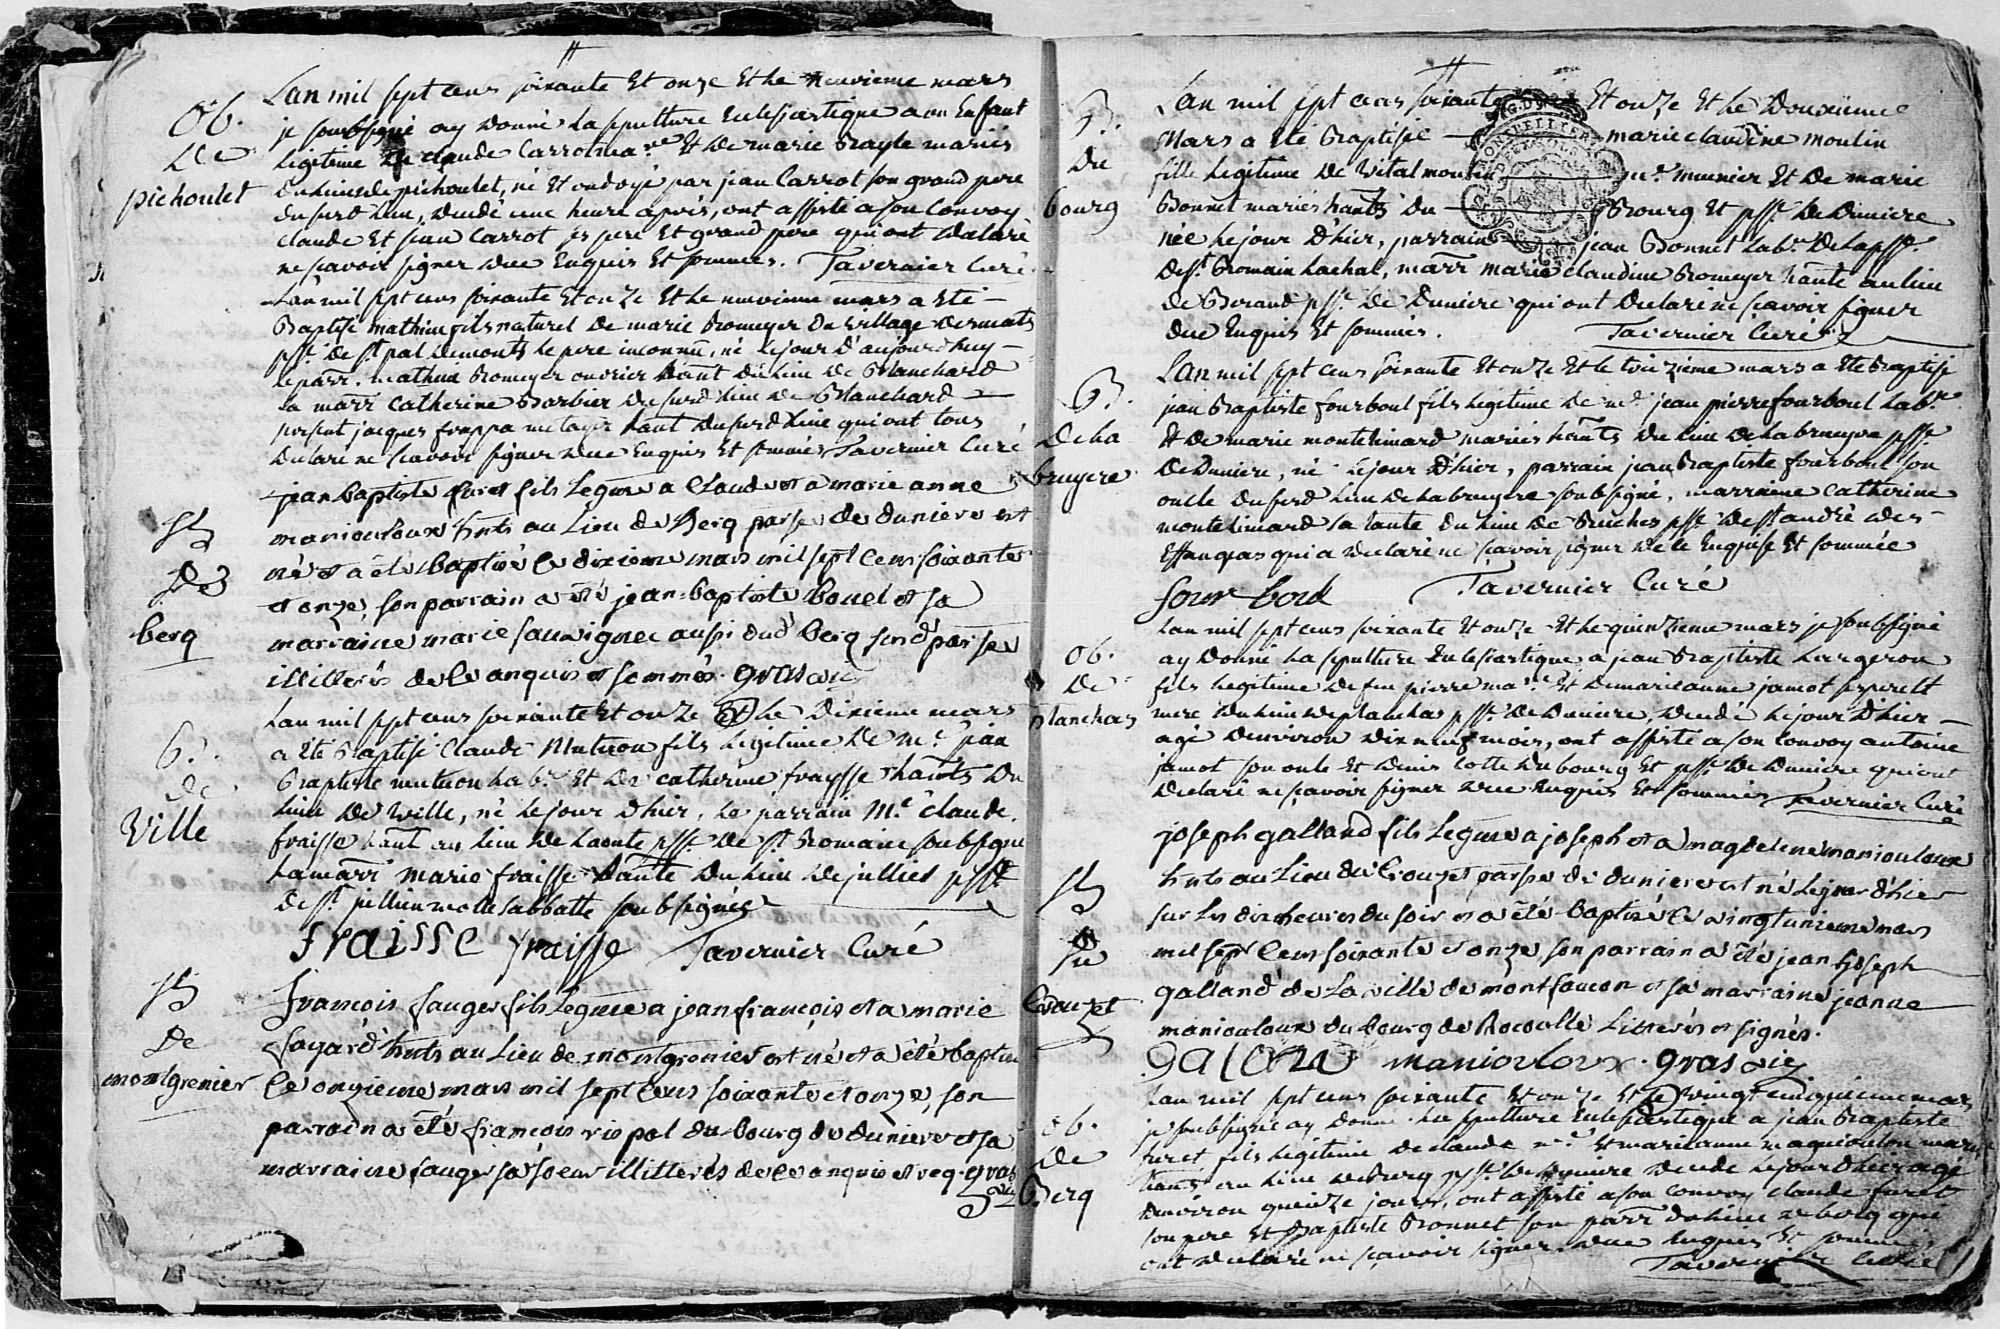 Lan mil sept cens soixante Et onze Et le neuvieme mars
ob. je soubsigné ay donné la sepulture Eclesiastique a un Enfant
de legitime de claude Carrot ma.re Et de marie Bayle mariés
pichoulet du lieu de pichoulet, né Et ondoyé par jean Carrot son grand pere
du susd lieu, decedé une heure après, ont assisté a son Convoy
claude Et jean Carrot ses pere Et grand pere qui ont declaré
ne scavoir signer due Enquis Et sommes. Tavernier Curé
Lan mil sept cens soixante Et onze Et le neuvieme mars a Eté
Baptisé mathieu fils naturel de marie Romeyer du village
psse de st pal demonts le pere inconnu, né le jour d'aujourdhuy
le parr. mathieu Romeyer ouvrier hant du lieu de Blanchard
la marr Catherine Barbier du susd lieu de Blanchard
present jacques frappa metayer hant du susd lieu qui ont tous
declaré ne scavoir signer due Enquis Et sommés Tavernier Curé
jean baptiste furet fils legme a claude et a marie anne
maniouloux hnts au lieu de Berq parsse de duniere est
né et a été baptisé le dixieme mars mil sept cens soixante
de et onze, son parrain a été jean-baptiste bonel et sa
berq marraine marie sauvignec aussi dud berq susd parsse
illitterés de ce enquis et sommés. gras vic
Lan mil sept cens soixante Et onze Et le Dixieme mars
B. a été Baptisé Claude Mutuon fils legitime de m.e jean
de Baptiste mutuon lab.r Et de catherine fraysse hants du
ville lieu de ville, né le jour dhier, le parrain M.e claude
fraisse hant au lieu de Laonte psse de st Romain soubsigné
la marr marie fraisse hante du lieu de jullies psse
de st jullien molle sabbatte soubsignés
fraisse fraisse Tavernier Curé
francois sauger fils legme a jean françois et a marie
de fayard hnts au lieu de montgrenier est né et a été baptisé
montgrenier le onzieme mars mil sept cens soixante et onze, son
parrain a été françois rispal du bourg de duniere et sa
marraine sauger sa soeur illitterés de ce enquis et req. gras
vic
Lan mil sept cens soixante Et onze Et le Douxieme
B. Mars a Eté Baptisée marie claudine moulin
du fille legitime de vital moulin m.e munier Et de marie
bourg Bonnet mariés hants du Bourg Et psse de Duniere
née le jour dhier, parrain jean Bonnet lab.r de la psse
de st Romain Lachal, marr marie claudine Romeyer hante au lieu
de Beraud psse de Duniere qui ont declaré ne scavoir signer
due Enquis Et sommés. Tavernier Curé
Lan mil sept cens soixante Et onze Et le treizieme mars a Eté Baptisé
B. jean Baptiste fourboul fils legitime de m.e jean pierre fourboul lab.r
de la Et de marie montelimard mariés hants du lieu de la bruyere psse
bruyere de Duniere, né le jour dhier, parrain jean Baptiste fourboul son
oncle du susd lieu de la bruyere soubsigné, marraine catherine
montelimard sa tante du lieu de Ruches psse de st andré des
Effangas qui a declaré ne scavoir signer de ce Enquise Et sommée
fourboul Tavernier Curé
Lan mil sept cens soixante Et onze Et le quinzieme mars je soubsigné
ob. ay Donné la sepulture Eclesiastique a jean Baptiste Largeron
de fils legitime de feu pierre ma.e Et de marie anne jamot ses pere Et
planchas mere du lieu de planchas psse de Duniere, decedé le jour dhier
agé denviron dix neuf mois, ont assisté a son Convoy antoine
jamot son oncle Et denis Cotte du bourg Et psse de Duniere qui ont
declaré ne scavoir signer due Enquis Et sommés Tavernier Curé
joseph galland fils legme a joseph et a magdeleine maniouloux
hnts au lieu du Crouzet parsse de duniere est né le jour d'hier
sur les dix heures du soir et a été baptisé le vingtunieme mars
du mil sept cens soixante et onze, son parrain a été jean joseph
Crouzet galland de la ville de montfaucon et sa marraine jeanne
maniouloux du bourg de Rocoulle litterés et signés.
galland maniouloux. gras vic
Lan mil sept cens soixante Et onze Et le vingt cinquieme mars
ob. je soubsigné ay donné la sepulture Eclesiastique a jean Baptiste
de furet fils legitime de claude Et marieanne
Berq hants au lieu de Berq psse de Duniere decedé le jour dhier agé
denviron quinze jours, ont assisté a son convoy claude furet
son pere Et Baptiste Bonnet son parr du lieu de berq qui
ont declaré ne scavoir signer due Enquis Et sommés
Tavernier Curé